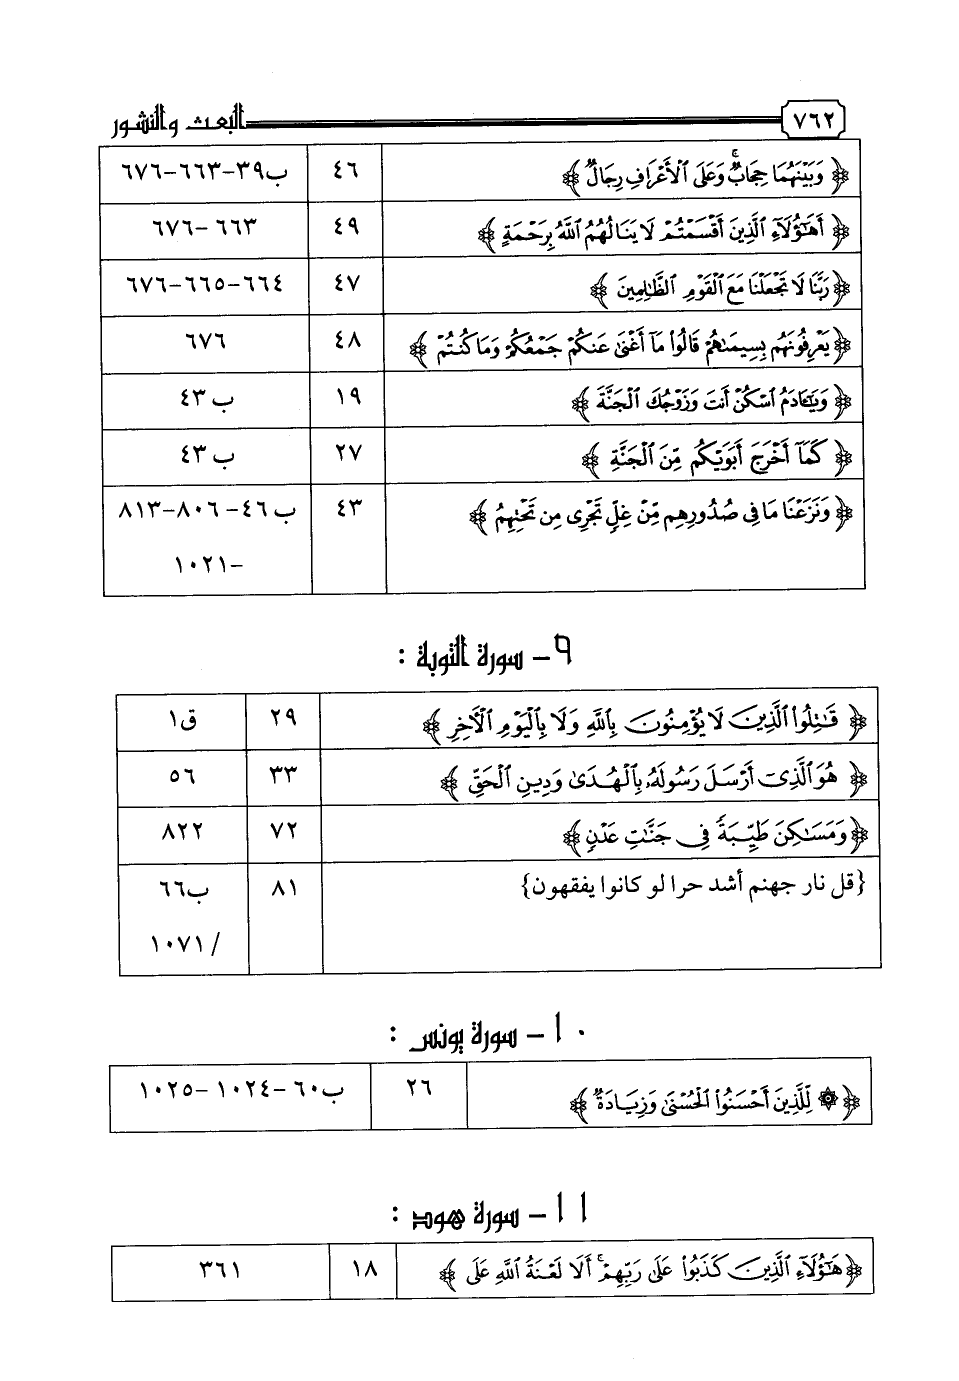 ٧٦٢ البعث والنشور
﴿ وَبَيْنَهُمَا حِجَابٌ ۚ وَعَلَى الْأَعْرَافِ رِجَالٌ ﴾ ٤٦ ب٣٩-٦٦٣-٦٧٦
﴿ أَهَٰؤُلَاءِ الَّذِينَ أَقْسَمْتُمْ لَا يَنَالُهُمُ اللَّهُ بِرَحْمَةٍ ﴾ ٤٩ ٦٦٣-٦٧٦
﴿ رَبَّنَا لَا تَجْعَلْنَا مَعَ الْقَوْمِ الظَّالِمِينَ ﴾ ٤٧ ٦٦٤-٦٦٥-٦٧٦
﴿ يَعْرِفُونَهُم بِسِيمَاهُمْ قَالُوا مَا أَغْنَىٰ عَنكُمْ جَمْعُكُمْ وَمَا كُنتُمْ ﴾ ٤٨ ٦٧٦
﴿ وَيَا آدَمُ اسْكُنْ أَنتَ وَزَوْجُكَ الْجَنَّةَ ﴾ ١٩ ب٤٣
﴿ كَمَا أَخْرَجَ أَبَوَيْكُم مِّنَ الْجَنَّةِ ﴾ ٢٧ ب٤٣
﴿ وَنَزَعْنَا مَا فِي صُدُورِهِم مِّنْ غِلٍّ تَجْرِي مِن تَحْتِهِمُ ﴾ ٤٣ ب٤٦-٨٠٦-٨١٣
-١٠٢١
٩- سورة التوبة :
﴿ قَاتِلُوا الَّذِينَ لَا يُؤْمِنُونَ بِاللَّهِ وَلَا بِالْيَوْمِ الْآخِرِ ﴾ ٢٩ ق١
﴿ هُوَ الَّذِي أَرْسَلَ رَسُولَهُ بِالْهُدَىٰ وَدِينِ الْحَقِّ ﴾ ٣٣ ٥٦
﴿ وَمَسَاكِنَ طَيِّبَةً فِي جَنَّاتِ عَدْنٍ ﴾ ٧٢ ٨٢٢
{قل نار جهنم أشد حرا لو كانوا يفقهون} ٨١ ب٦٦
/١٠٧١
١٠- سورة يونس :
﴿ ۞ لِّلَّذِينَ أَحْسَنُوا الْحُسْنَىٰ وَزِيَادَةٌ ﴾ ٢٦ ب٦٠-١٠٢٤-١٠٢٥
١١- سورة هود :
﴿ هَٰؤُلَاءِ الَّذِينَ كَذَبُوا عَلَىٰ رَبِّهِمْ ۚ أَلَا لَعْنَةُ اللَّهِ عَلَى ﴾ ١٨ ٣٦١